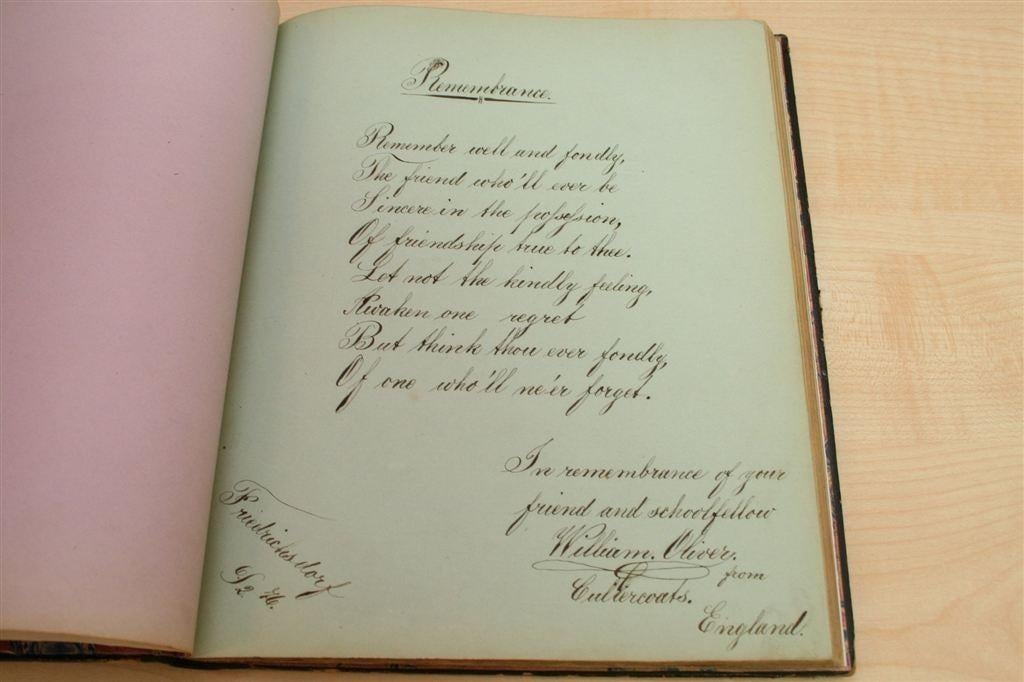 Remembrance.
Remember well and fondly,
The friend who'll ever be
Sincere in the possession,
Of friendship true to thee.
Let not the kindly feeling,
Awaken one regret
But think thou ever fondly,
Of one who'll ne'er forget.
In remembrance of your
friend and schoolfellow
William. Oliver.
from
Cullercoats.
England.
Friedrichsdorf